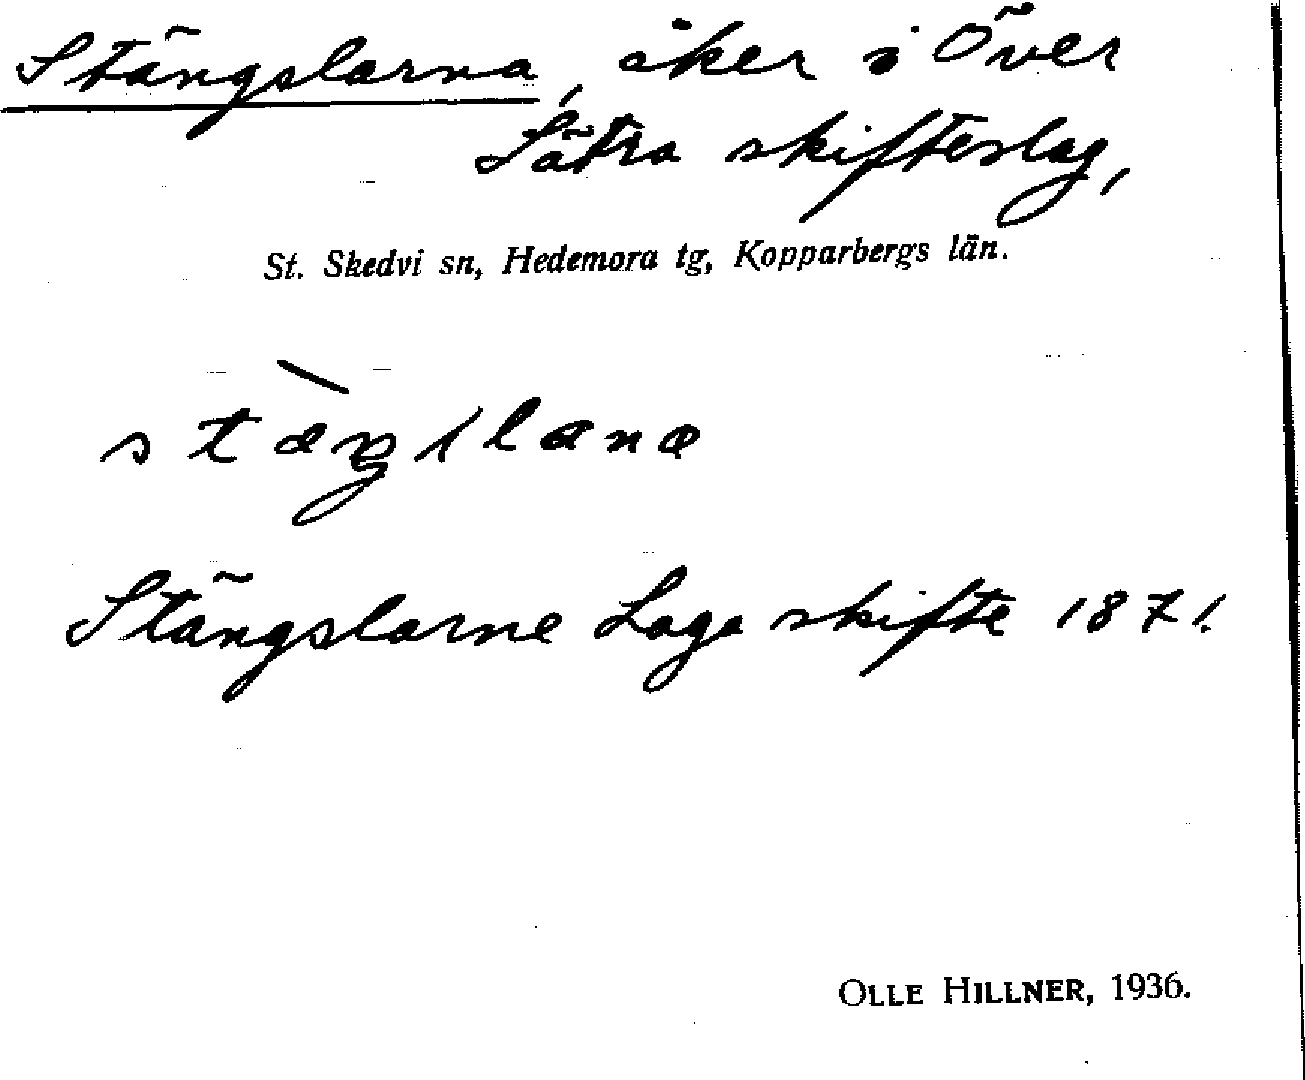 Stängslarna, åker i Över
Sätra skifteslag,
St. Skedvi sn, Hedemora tg, Kopparbergs län.
Stängslarne Laga skifte 1871.
OLLE HILLNER, 1936.